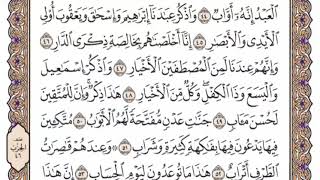 ٱلْعَبْدُ إِنَّهُۥٓ أَوَّابٌ ٤٤ وَٱذْكُرْ عِبَٰدَنَآ إِبْرَٰهِيمَ وَإِسْحَٰقَ وَيَعْقُوبَ أُو۟لِى
ٱلْأَيْدِى وَٱلْأَبْصَٰرِ ٤٥ إِنَّآ أَخْلَصْنَٰهُم بِخَالِصَةٍ ذِكْرَى ٱلدَّارِ ٤٦
وَإِنَّهُمْ عِندَنَا لَمِنَ ٱلْمُصْطَفَيْنَ ٱلْأَخْيَارِ ٤٧ وَٱذْكُرْ إِسْمَٰعِيلَ
وَٱلْيَسَعَ وَذَا ٱلْكِفْلِ وَكُلٌّ مِّنَ ٱلْأَخْيَارِ ٤٨ هَٰذَا ذِكْرٌ وَإِنَّ لِلْمُتَّقِينَ
لَحُسْنَ مَـَٔابٍ ٤٩ جَنَّٰتِ عَدْنٍ مُّفَتَّحَةً لَّهُمُ ٱلْأَبْوَٰبُ ٥٠ مُتَّكِـِٔينَ
فِيهَا يَدْعُونَ فِيهَا بِفَٰكِهَةٍ كَثِيرَةٍ وَشَرَابٍ ٥١ وَعِندَهُمْ قَٰصِرَٰتُ
ٱلطَّرْفِ أَتْرَابٌ ٥٢ هَٰذَا مَا تُوعَدُونَ لِيَوْمِ ٱلْحِسَابِ ٥٣ إِنَّ هَٰذَا